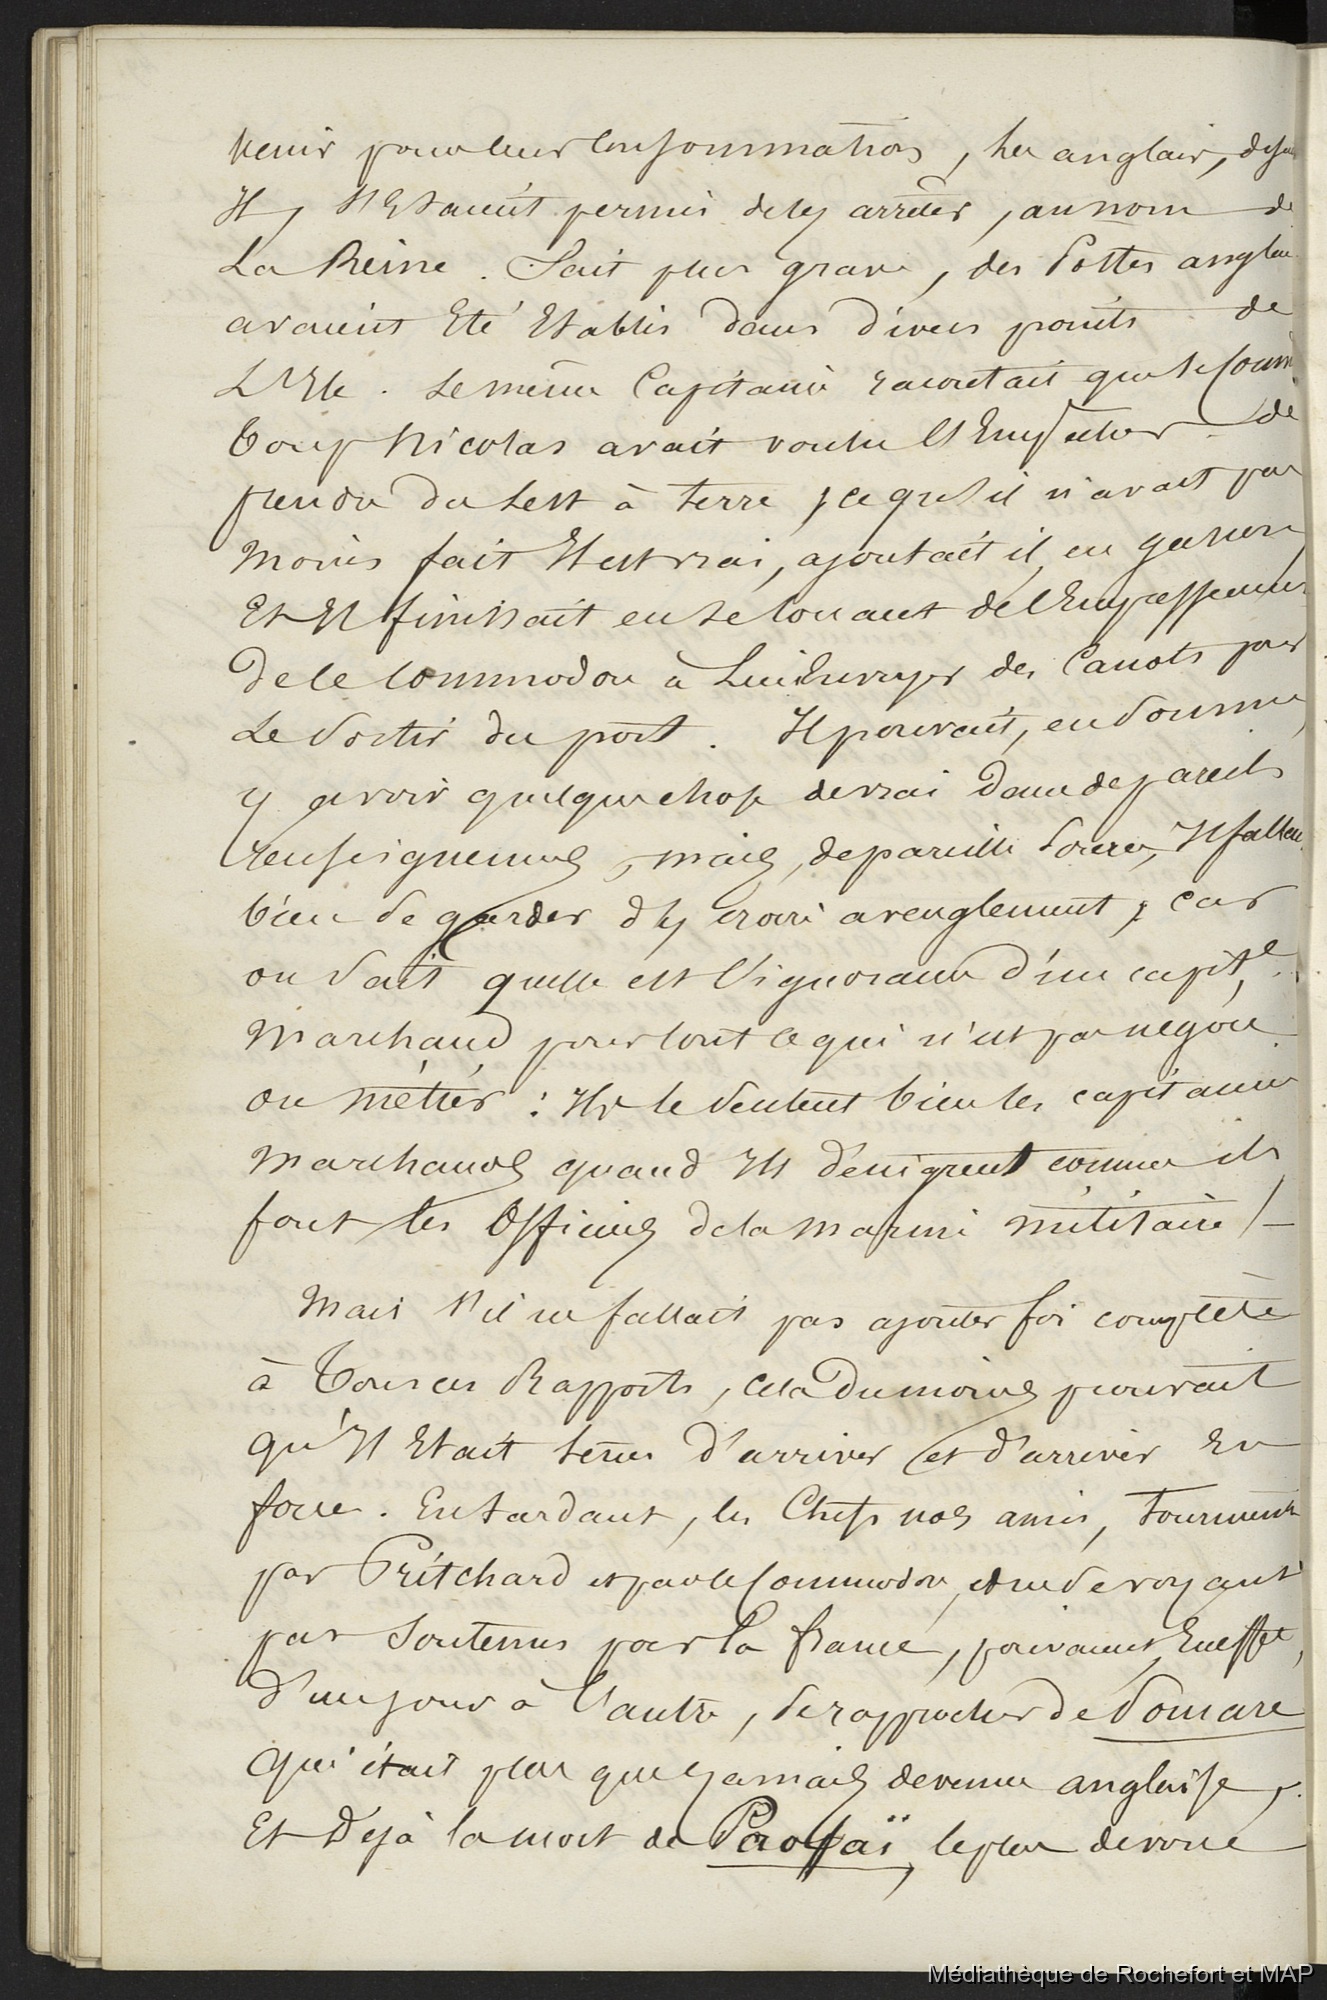 venir pour leur consommation, les anglais, disait
Il, s'Etaient permis de les arrêter, au nom de
La Reine. Fait plus grave, des Postes anglais
avaient Eté Etablis dans divers points de
L'Ile. Le même Capitaine racontait que le Comm.
Toup Nicolas avait voulu l'Empêcher de
prendre du lest à terre, ce qu'il n'avait pas
moins fait Il est vrai, ajoutait il, en
Et Il finissait en se louant de l'Empressement
de le Commodore à Lui Envoyer des Canots pour
Le Sortir du port. Il pouvait, en somme,
y avoir quelque chose de vrai dans de pareils
renseignemens, mais, de pareille source, Il fallait
bien se garder d'y croire aveuglement, car
on sait quelle est l'ignorance d'un capit.e
Marchand pour tout ce qui n'est pas négoce
ou métier : Ils le sentent bien les capitaines
Marchands quand Ils dénigrent comme ils
font les Officiers de la Marine militaire !—
Mais s'il ne fallait pas ajouter foi complète
à Tous ces Rapports, cela du moins prouvait
qu'Il Etait tems d'arriver et d'arriver En
force. En tardant, les Chefs nos amis, tourmentés
par Pritchard et par le Commodore, et ne se voyant
pas soutenus par la France, pouvaient, En effet,
d'un jour à l'autre, se rapprocher de Pomaré
qui était plus que jamais devenue anglaise,
Et Déjà la mort de Paofaï, le plus dévoué
Médiathèque de Rochefort et MAP